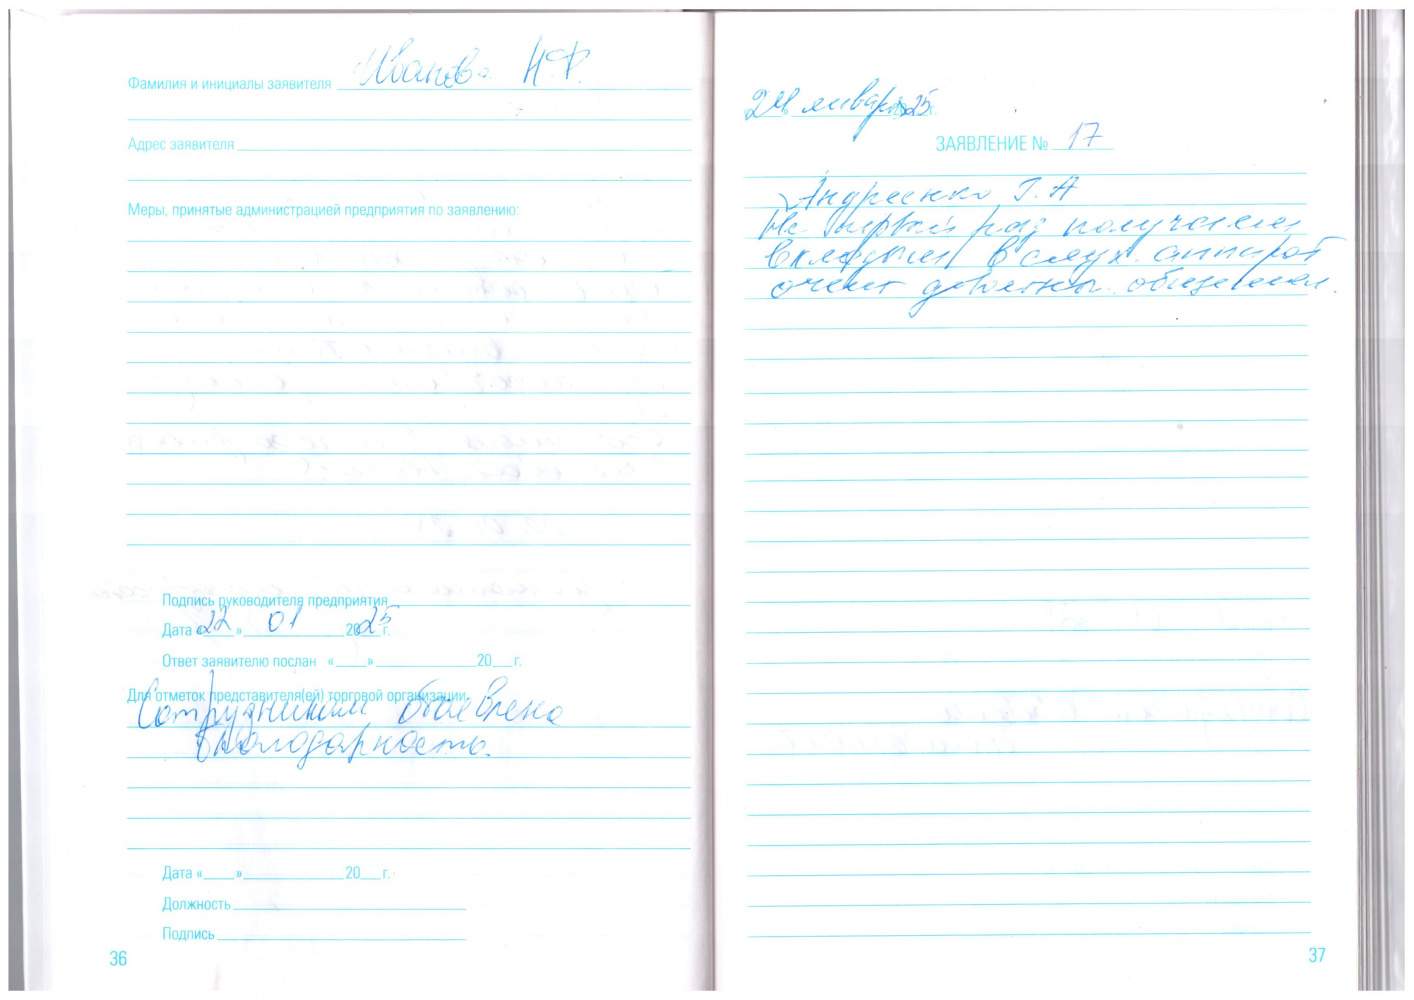 Фамилия и инициалы заявителя Иванова Н.Ф.
Адрес заявителя
Меры, принятые администрацией предприятия по заявлению:
Подпись руководителя предприятия
Дата «22» 01 2025 г.
Ответ заявителю послан «___» ________ 20__ г.
Для отметок представителя(ей) торговой организации
Сотрудникам объявлена
благодарность.
Дата «___» ________ 20__ г.
Должность
Подпись
36
24 января 25
ЗАЯВЛЕНИЕ № 17
Андреенко Г.А
Не первый раз получаем
вкладыши в слух. аппарат
очень довольны обслужив.
37